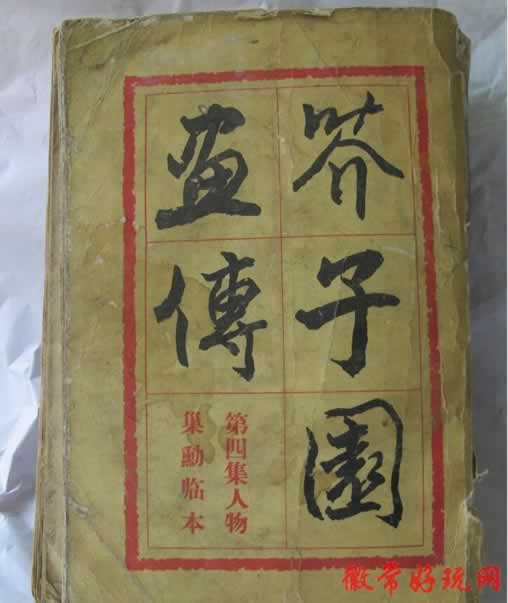 芥子園
畫傳
第四集人物
巢勳临本
徽常好玩网